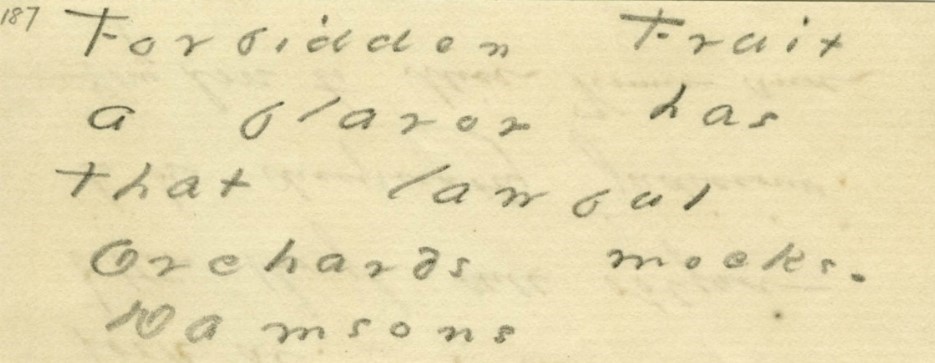 187
Forbidden Fruit
a flavor has
that lawful
Orchards mocks.
Damsons